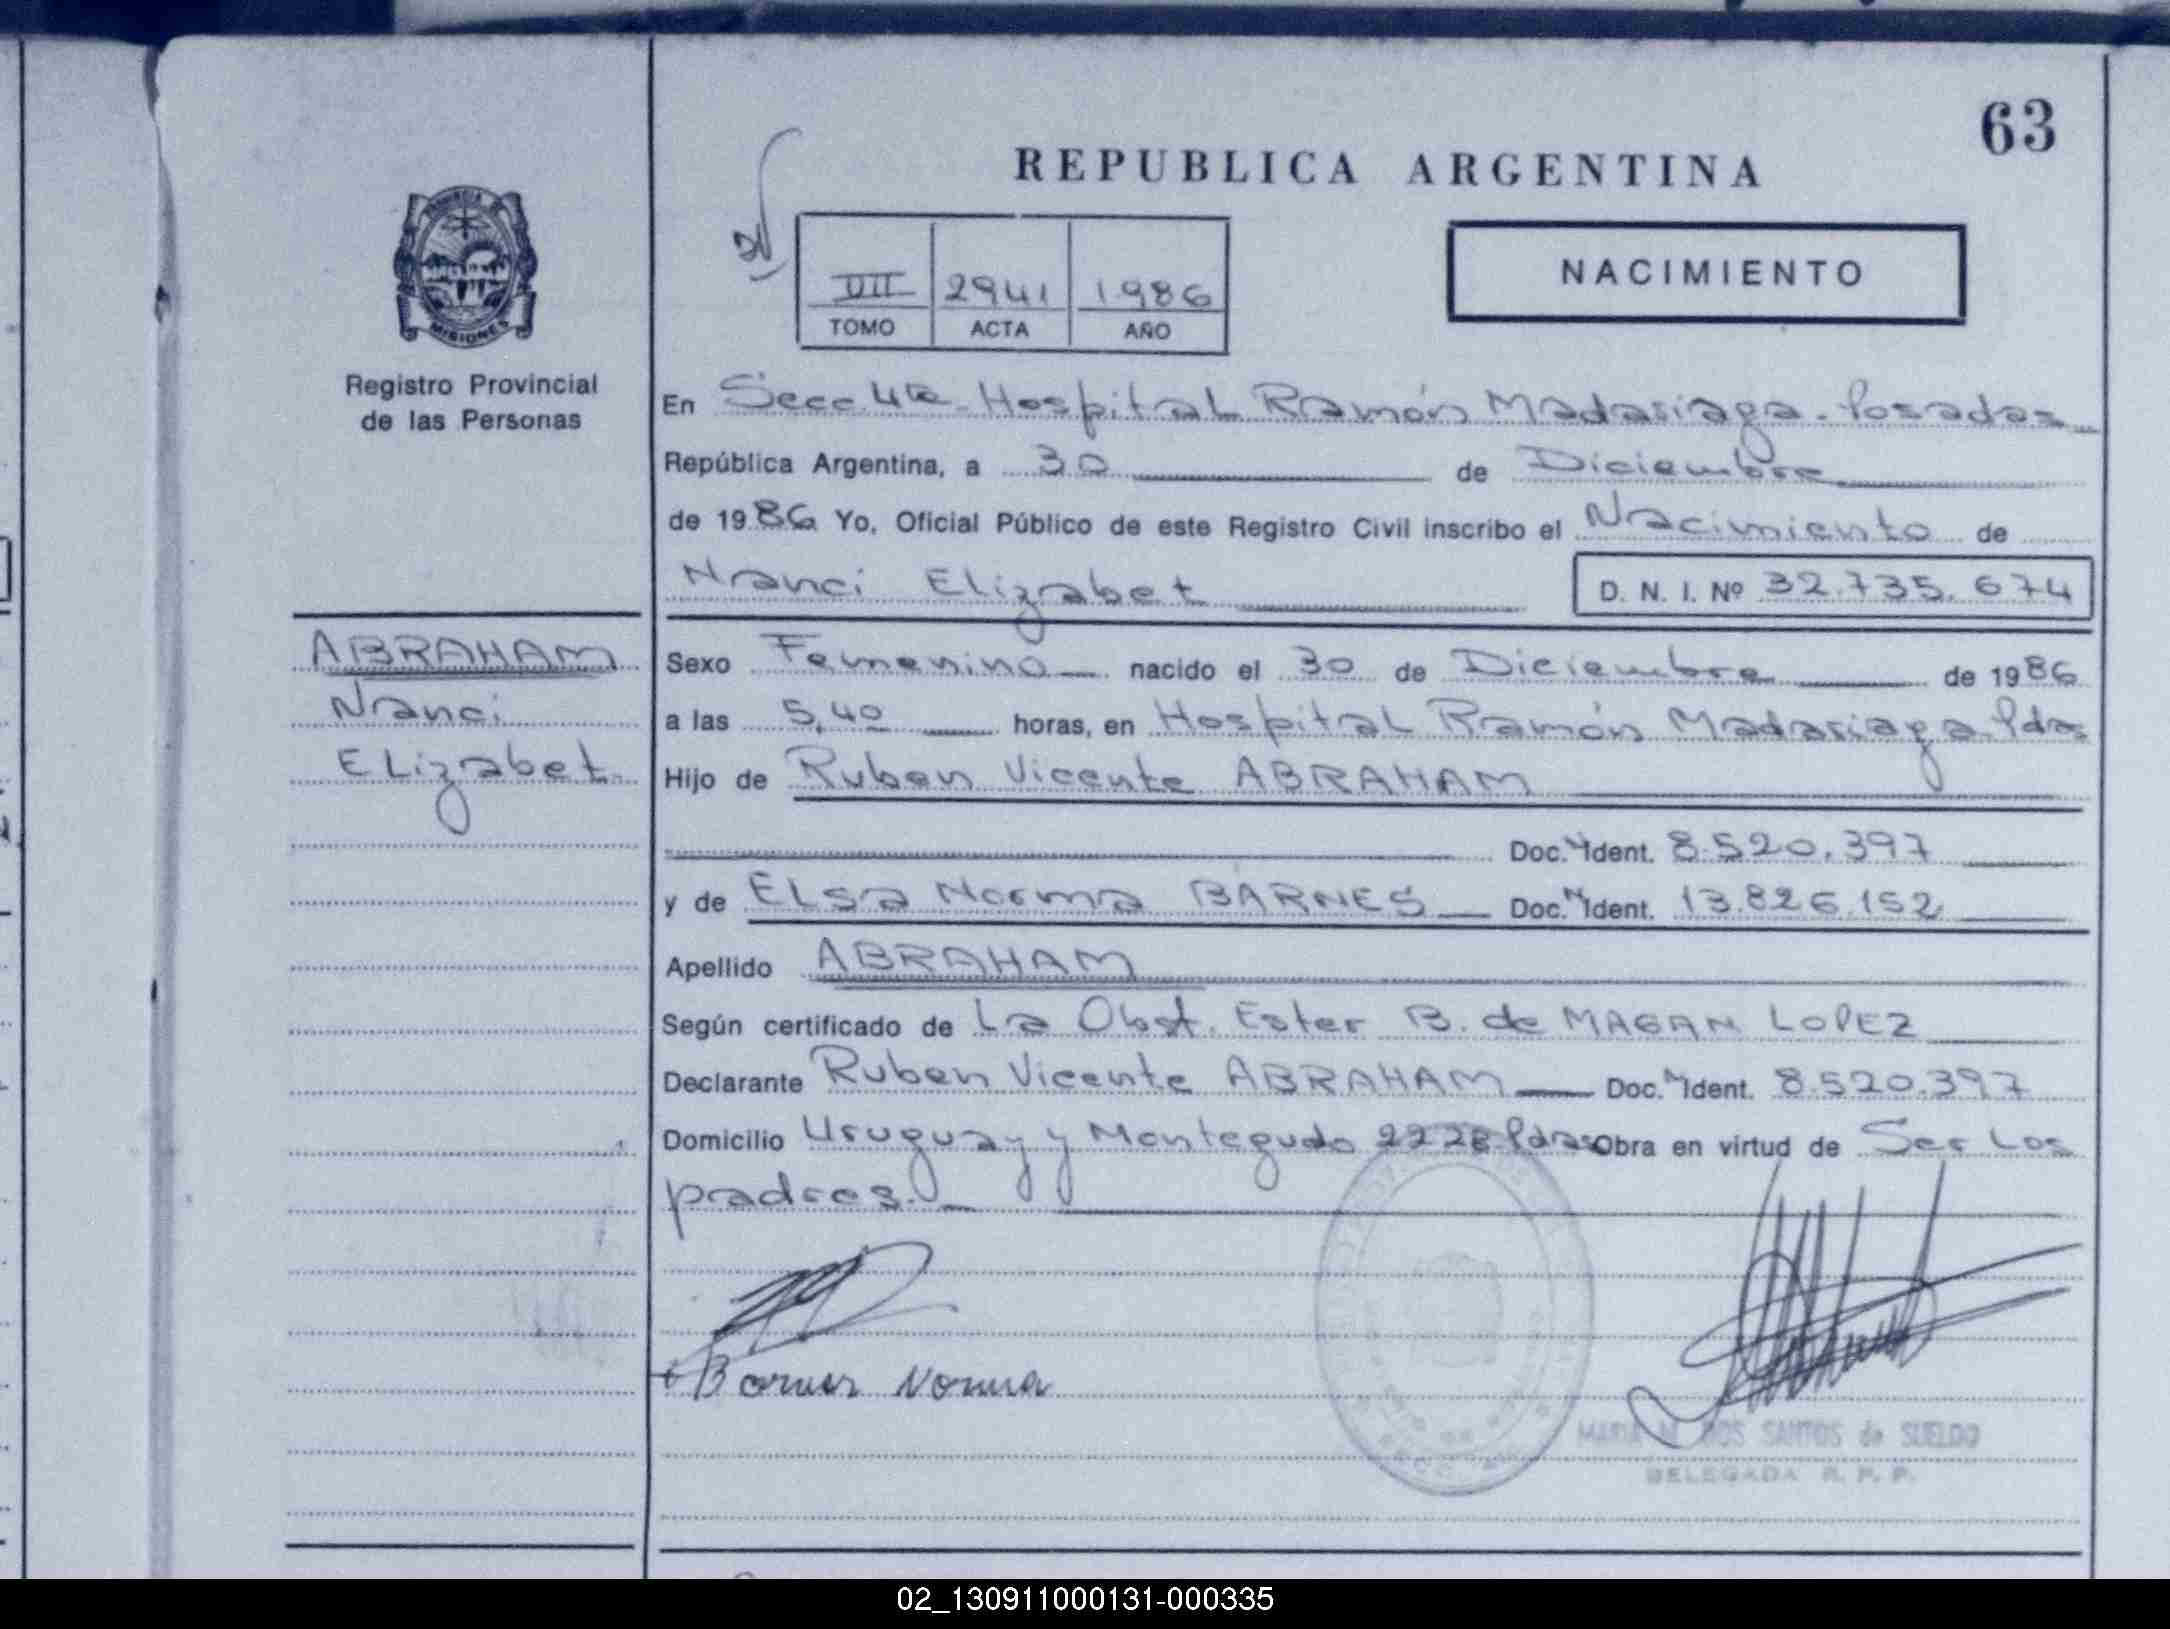 63
REPUBLICA ARGENTINA
NACIMIENTO
VII 2941 1986
TOMO ACTA AÑO
MISIONES
Registro Provincial
de las Personas
En Secc 4ta - Hospital Ramón Madariaga - Posadas
República Argentina, a 30 de Diciembre
de 1986 Yo, Oficial Público de este Registro Civil inscribo el Nacimiento de
Nanci Elizabet D. N. I. Nº 32.735.674
ABRAHAM
Nanci
Elizabet
Sexo Femenino nacido el 30 de Diciembre de 1986
a las 5,40 horas, en Hospital Ramón Madariaga Pdas
Hijo de Ruben Vicente ABRAHAM
Doc. Ident. 8.520.397
y de ELSa Norma BARNES Doc. Ident. 13.826.152
Apellido ABRAHAM
Según certificado de La Obst. Ester B. de MAGAN LOPEZ
Declarante Ruben Vicente ABRAHAM Doc. Ident. 8.520.397
Domicilio Uruguay y Monteagudo 2228 Pdas Obra en virtud de Ser Los
padres.
Norma
DOS SANTOS de SUELDO
DELEGADA R. P. P.
02_130911000131-000335